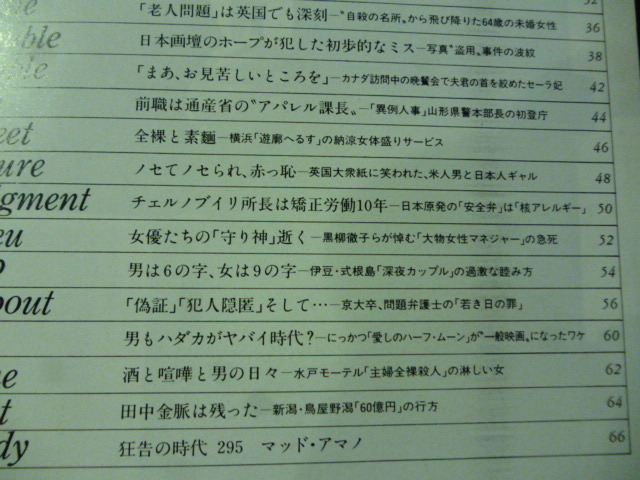 32
「老人問題」は英国でも深刻―“自殺の名所„から飛び降りた64歳の未婚女性 36
able
日本画壇のホープが犯した初歩的なミス―写真“盗用„事件の波紋 38
「まあ、お見苦しいところを」―カナダ訪問中の晩餐会で夫君の首を絞めたセーラ妃 42
前職は通産省の“アパレル課長„―「異例人事」山形県警本部長の初登庁 44
eet
全裸と素麺―横浜「遊廓へるす」の納涼女体盛りサービス 46
ure
ノセてノセられ、赤っ恥―英国大衆紙に笑われた、米人男と日本人ギャル 48
gment
チェルノブイリ所長は矯正労働10年―日本原発の「安全弁」は「核アレルギー」 50
eu
女優たちの「守り神」逝く―黒柳徹子らが悼む「大物女性マネジャー」の急死 52
男は6の字、女は9の字―伊豆・式根島「深夜カップル」の過激な睦み方 54
bout
「偽証」「犯人隠匿」そして…―京大卒、問題弁護士の「若き日の罪」 56
男もハダカがヤバイ時代?―にっかつ「愛しのハーフ・ムーン」が“一般映画„になったワケ 60
ne
酒と喧嘩と男の日々―水戸モーテル「主婦全裸殺人」の淋しい女 62
t
田中金脈は残った―新潟・鳥屋野潟「60億円」の行方 64
dy
狂告の時代 295 マッド・アマノ 66